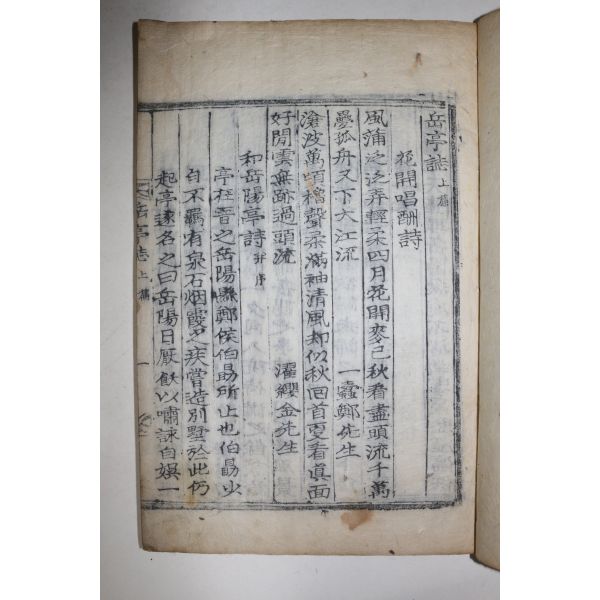 岳亭誌上編
花開唱酬詩
風蒲泛泛弄輕柔四月花開麥已秋看盡頭流千萬
疊孤舟又下大江流 一蠹鄭先生
滄波萬頃櫓聲柔滿袖清風却似秋回首更看眞面
好閒雲無跡過頭流 濯纓金先生
和岳陽亭詩并序
亭在晋之岳陽縣鄭侯伯勗所止也伯勗少
自不羈有泉石烟霞之疾嘗造別墅於此仍
起亭遂名之曰岳陽日厭飫以嘯詠自娛一
岳亭誌 上編 一